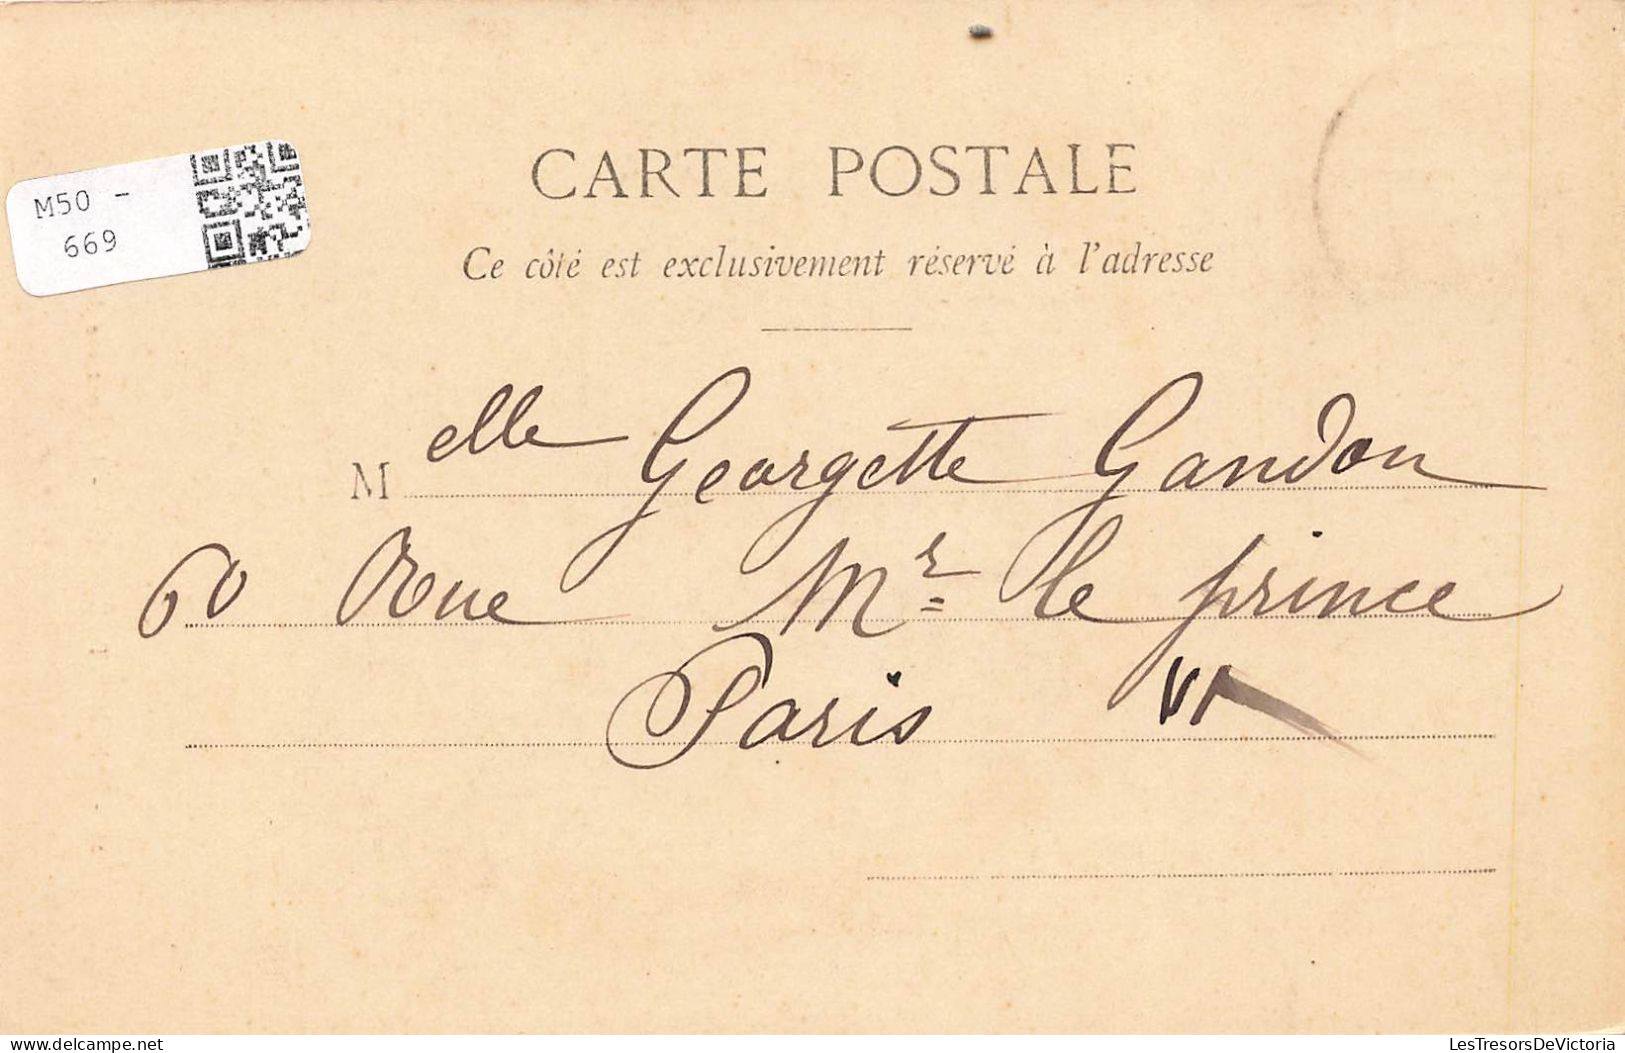 CARTE POSTALE
M50 -
669
Ce côté est exclusivement réservé à l'adresse
Melle Georgette Gandon
60 Rue Mr le prince
Paris VI
LesTresorsDeVictoria